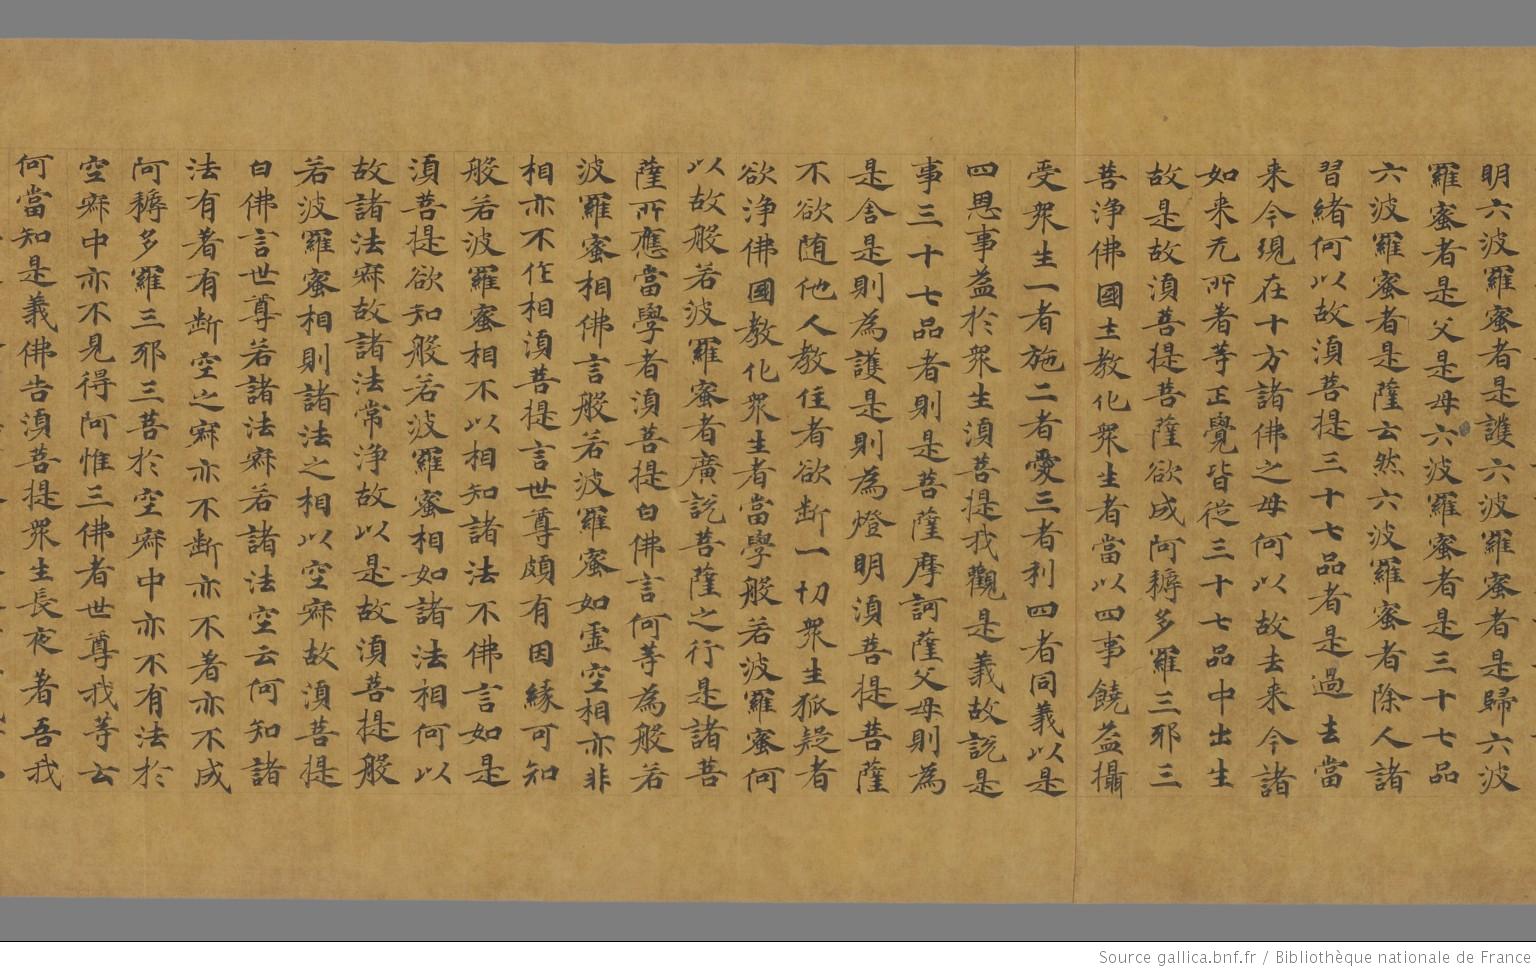 明六波羅蜜者是護六波羅蜜者是歸六波
羅蜜者是父是母六波羅蜜者是三十七品
六波羅蜜者是薩云然六波羅蜜者除人諸
習緒何以故湏菩提三十七品者是過去當
来今現在十方諸佛之母何以故去来今諸
如来无所著等正覺皆從三十七品中出生
故是故湏菩提菩薩欲成阿耨多羅三耶三
菩浄佛國土教化衆生者當以四事饒益攝
受衆生一者施二者愛三者利四者同義以是
四恩事益於衆生湏菩提我觀是義故說是
事三十七品者則是菩薩摩訶薩父母則為
是舍是則為護是則為燈明湏菩提菩薩
不欲随他人教住者欲断一切衆生狐疑者
欲浄佛國教化衆生者當學般若波羅蜜何
以故般若波羅蜜者廣說菩薩之行是諸菩
薩所應當學者湏菩提白佛言何等為般若
波羅蜜相佛言般若波羅蜜如虚空相亦非
相亦不作相湏菩提言世尊頗有因緣可知
般若波羅蜜相不以相知諸法不佛言如是
湏菩提欲知般若波羅蜜相如諸法相何以
故諸法寂故諸法常浄故以是故湏菩提般
若波羅蜜相則諸法之相以空寂故湏菩提
白佛言世尊若諸法寂若諸法空云何知諸
法有著有断空之寂亦不断亦不著亦不成
阿耨多羅三耶三菩於空寂中亦不有法於
空寂中亦不見得阿惟三佛者世尊我等云
何當知是義佛告湏菩提衆生長夜著吾我
Source gallica.bnf.fr / Bibliothèque nationale de France